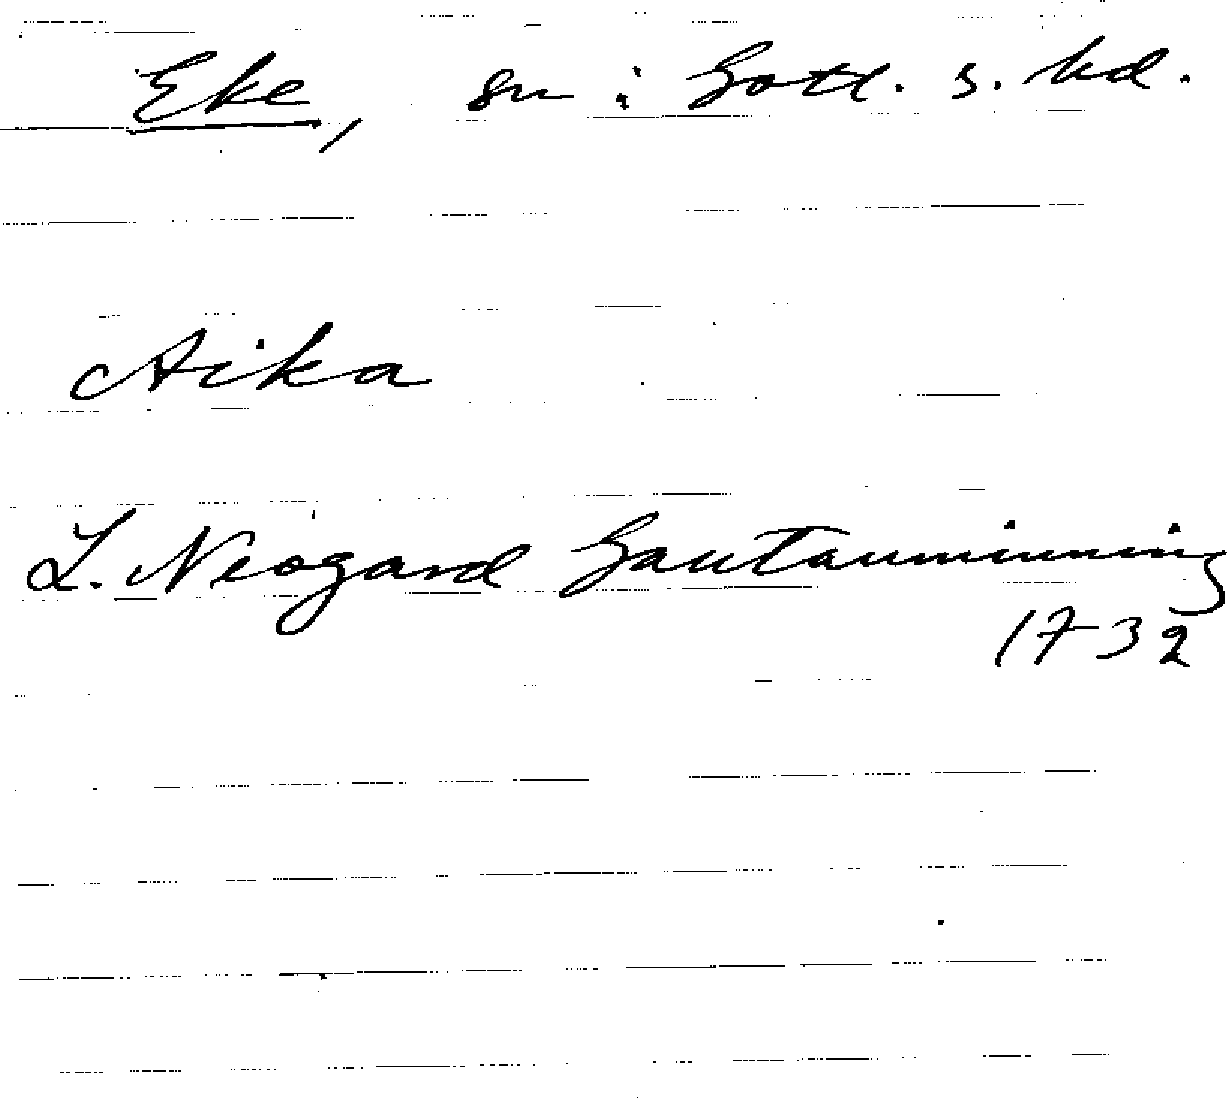 Eke, sn : Gotl. s. hd.
Aika
L. Neogard Gautauminning
1732